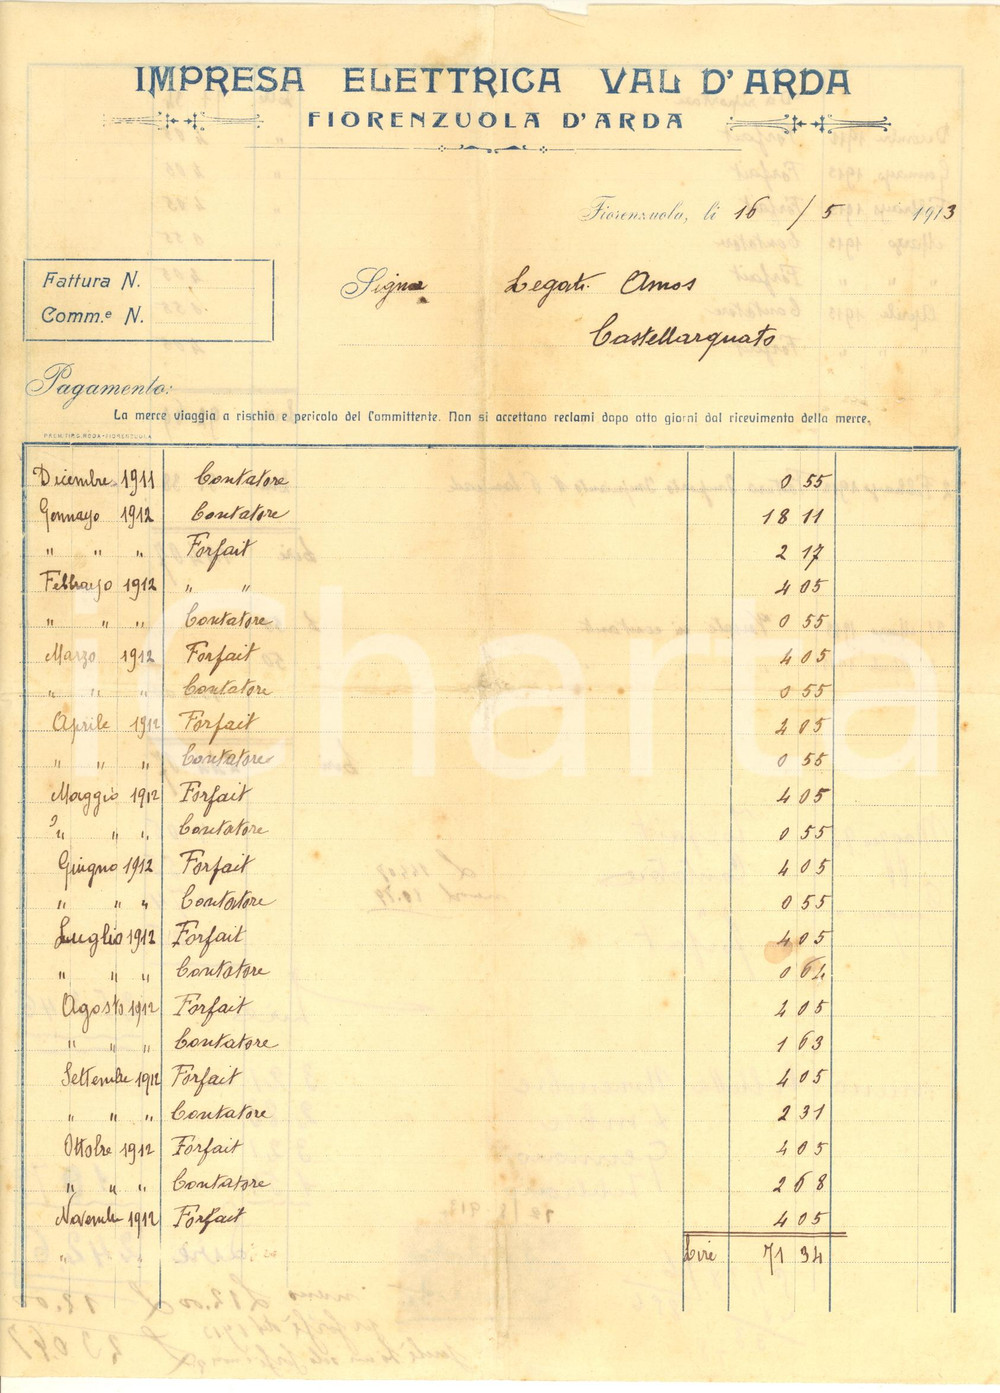 IMPRESA ELETTRICA VAL D'ARDA
FIORENZUOLA D'ARDA
Fiorenzuola, li 16 / 5 1913
Fattura N.
Comm.e N.
Signor Legati Amos
Castellarquato
Pagamento:
La merce viaggia a rischio e pericolo del Committente. Non si accettano reclami dopo otto giorni dal ricevimento della merce.
PREM. TIPO. RODA-FIORENZUOLA
Dicembre 1911 Contatore 0 55
Gennayo 1912 Contatore 18 11
" " " Forfait 2 17
Febbrayo 1912 " " 4 05
" " " Contatore 0 55
Marzo 1912 Forfait 4 05
" " " Contatore 0 55
Aprile 1912 Forfait 4 05
" " " Contatore 0 55
Maggio 1912 Forfait 4 05
" " " Contatore 0 55
Giugno 1912 Forfait 4 05
" " " Contatore 0 55
Luglio 1912 Forfait 4 05
" " " Contatore 0 64
Agosto 1912 Forfait 4 05
" " " Contatore 1 63
Settembre 1912 Forfait 4 05
" " " Contatore 2 31
Ottobre 1912 Forfait 4 05
" " " Contatore 2 68
Novembre 1912 Forfait 4 05
Lire 71 34
iCharta